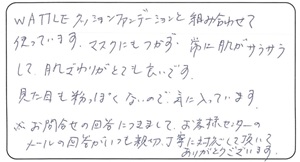 WATTLE クッションファンデーションと組み合わせて
使っています。マスクにもつかず、常に肌がサラサラ
して、肌ざわりがとても良いです。
見た目も粉っぽくないので気に入っています。
※お問合せの回答につきまして、お客様センターの
メールの回答がいつも親切、丁寧に対応して頂いて
ありがとうございます。